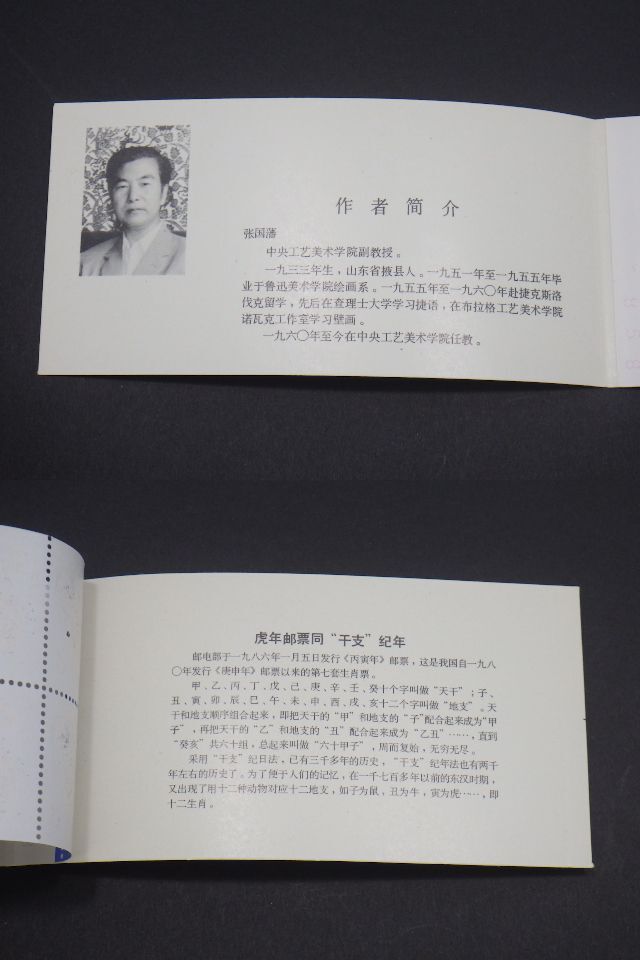 作者简介
张国藩
中央工艺美术学院副教授。
一九三三年生，山东省掖县人。一九五一年至一九五五年毕
业于鲁迅美术学院绘画系。一九五五年至一九六〇年赴捷克斯洛
伐克留学，先后在查理士大学学习捷语，在布拉格工艺美术学院
诺瓦克工作室学习壁画。
一九六〇年至今在中央工艺美术学院任教。
虎年邮票同“干支”纪年
邮电部于一九八六年一月五日发行《丙寅年》邮票，这是我国自一九八
〇年发行《庚申年》邮票以来的第七套生肖票。
甲、乙、丙、丁、戊、己、庚、辛、壬、癸十个字叫做“天干”；子、
丑、寅、卯、辰、巳、午、未、申、酉、戌、亥十二个字叫做“地支”。天
干和地支顺序组合起来，即把天干的“甲”和地支的“子”配合起来成为“甲
子”，再把天干的“乙”和地支的“丑”配合起来成为“乙丑”……，直到
“癸亥”共六十组，总起来叫做“六十甲子”，周而复始，无穷无尽。
采用“干支”纪日法，已有三千多年的历史，“干支”纪年法也有两千
年左右的历史了。为了便于人们的记忆，在一千七百多年以前的东汉时期，
又出现了用十二种动物对应十二地支，如子为鼠，丑为牛，寅为虎……，即
十二生肖。